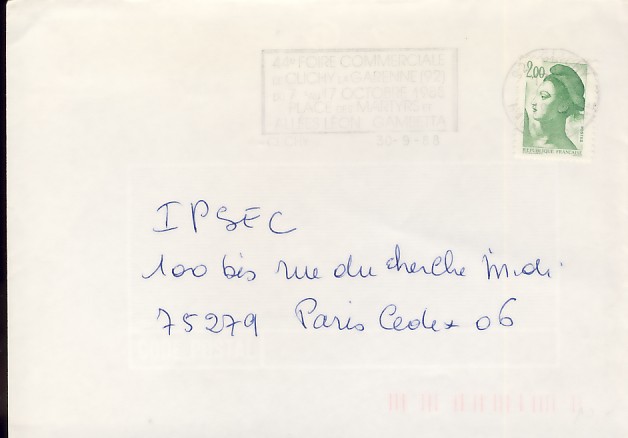 44e FOIRE COMMERCIALE
CLICHY LA GARENNE (92)
17 OCTOBRE 1988
PLACE DES MARTYRS et
ALLEES LEON GAMBETTA
30-9-88
2,00
REPUBLIQUE FRANÇAISE
IPSEC
100 bis rue du cherche Midi
75279 Paris Cedex 06